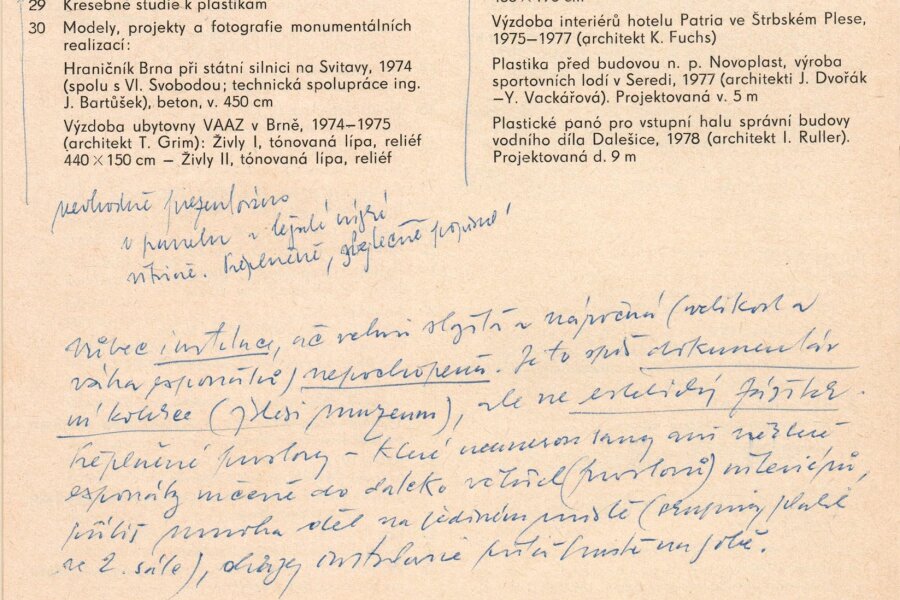 29 Kresebné studie k plastikám
30 Modely, projekty a fotografie monumentálních
realizací:
Hraničník Brna při státní silnici na Svitavy, 1974
(spolu s Vl. Svobodou; technická spolupráce ing.
J. Bartůšek), beton, v. 450 cm
Výzdoba ubytovny VAAZ v Brně, 1974–1975
(architekt T. Grim): Živly I, tónovaná lípa, reliéf
440 × 150 cm – Živly II, tónovaná lípa, reliéf
Výzdoba interiérů hotelu Patria ve Štrbském Plese,
1975–1977 (architekt K. Fuchs)
Plastika před budovou n. p. Novoplast, výroba
sportovních lodí v Seredi, 1977 (architekti J. Dvořák
–Y. Vackářová). Projektovaná v. 5 m
Plastické panó pro vstupní halu správní budovy
vodního díla Dalešice, 1978 (architekt I. Ruller).
Projektovaná d. 9 m
nevhodně prezentováno
v panelu a ležaté nízké
vitríně. Přeplněné, zbytečně popisné!
Vůbec instalace, ač velmi složitá a náročná (velikost a
váha exponátů) nepochopena. Je to spíš dokumentár
ní kolekce (jakési muzeum), ale ne estetický zážitek.
Přeplněné prostory – které neunesou tany ani některé
exponáty určené do daleko větších (prostorů) interiérů,
příliš mnoha děl na jediném místě (skupiny plastik
ve 2. sále), obrazy instalované příliš hustě na sobě.